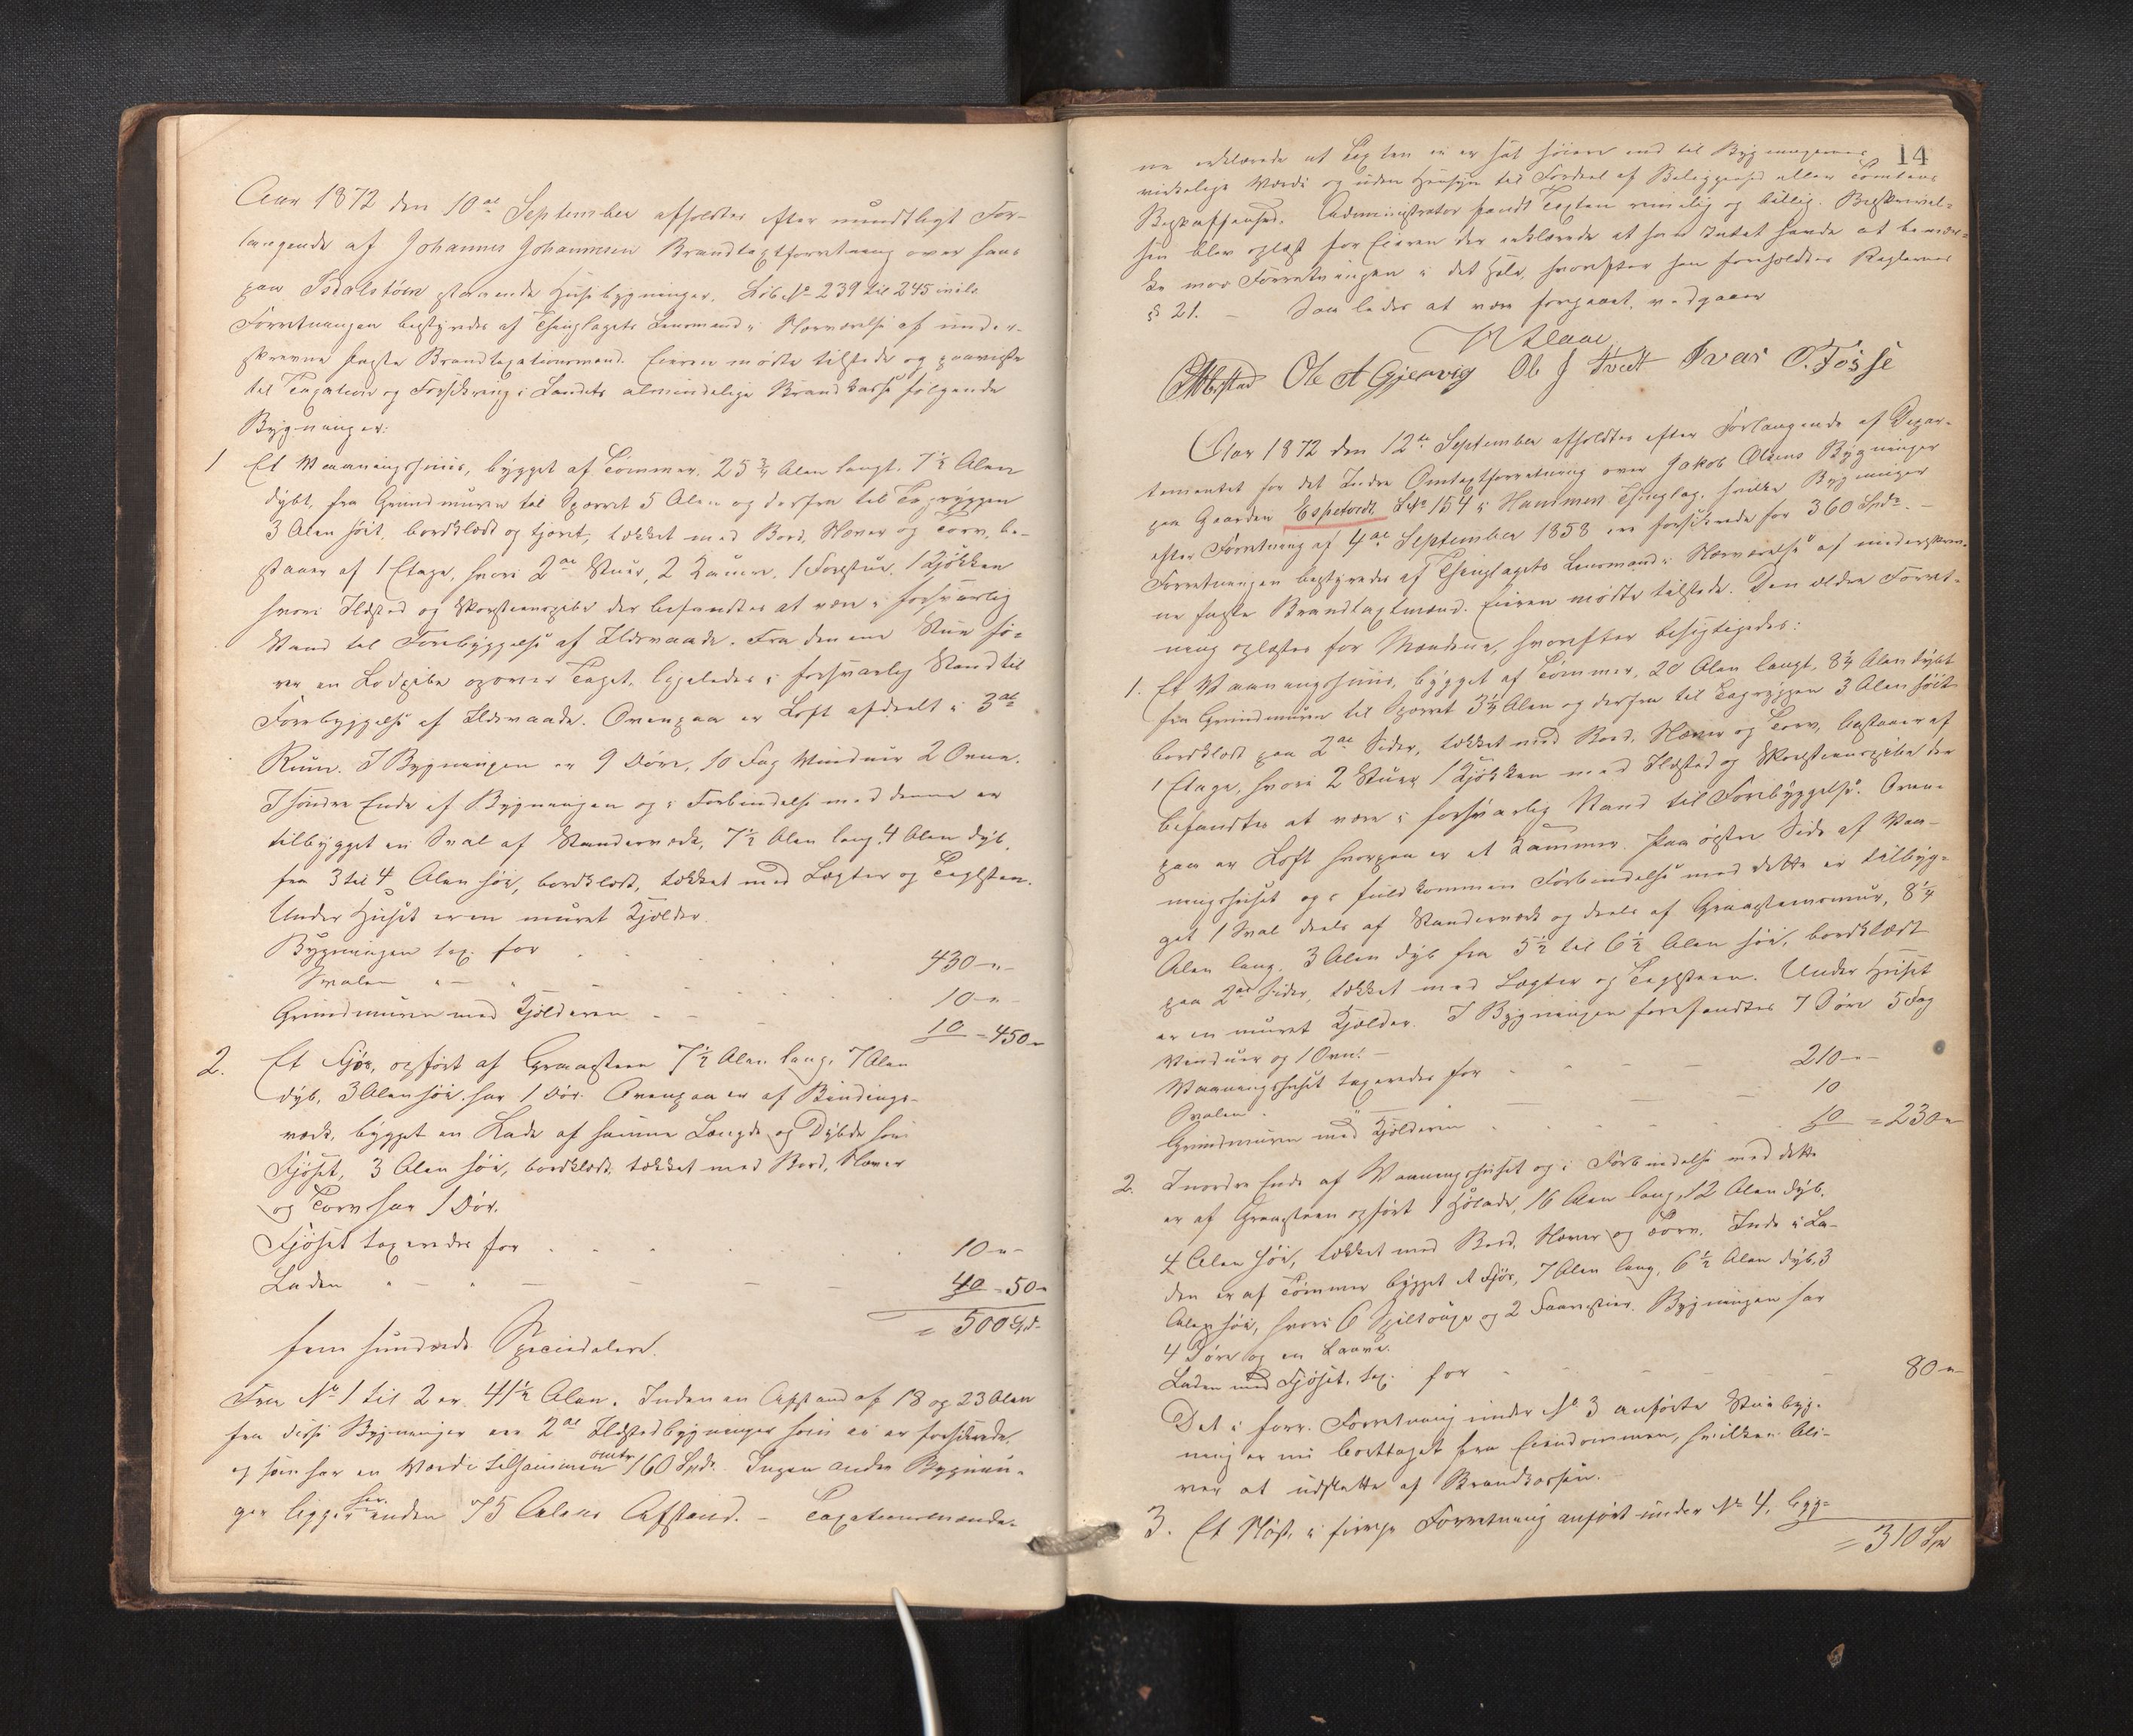 Aar 1872 den 10de September afholdtes efter mundtligt For-
langende af Johannes Johannesen Brandtaxtforretning over hans
paa Isdalstøen staaende Huusbygninger, Løbe No 239 til 245 incl.
Forretningen bestyredes af Thinglagets Lensmand i Nærværelse af under-
skrevne faste Brandtaxationsmænd. Eieren mødte tilstede og paaviste
til Taxation og Forsikring i Landets almindelige Brandkasse følgende
Bygninger:
1 Et Vaaningshuus, bygget af Tømmer, 25 3/4 Alen langt, 7 1/2 Alen
dybt, fra Grundmuren til Sparret 5 Alen og derfra til Tagryggen
3 Alen høit, bordklædt og tjæret, tækket med Bord, Næver og Torv, be-
staaer af 1 Etage, hvori 2de Stuer, 2 Kamre, 1 Forstue, 1 Kjøkken
hvori Ildsted og Skorsteenspibe der befandtes at være i forsvarlig
Stand til Forebyggelse af Ildsvaade. Fra den ene Stue fø-
rer en Lodpibe op over Taget, ligeledes i forsvarlig Stand til
Forebyggelse af Ildsvaade. Ovenpaa er Loft afdeelt i 3de
Rum. I Bygningen er 9 Døre, 10 Fag Vinduer 2 Ovne.
I søndre Ende af Bygningen og i Forbindelse med denne er
tilbygget en Sval af Standerværk, 7 1/2 Alen lang, 4 Alen dyb,
fra 3 til 4 Alen høi, bordklædt, tækket med Lægter og Taglsten.
Under Huset er en muret Kjælder.
Bygningen tax. for 430 -"-
Svalen " — " — 10 -"-
Grundmuren med Kjælderen 10 = 450 "
2. Et Fjøs, opført af Graasteen 7 1/2 Alen lang, 7 Alen
dyb, 3 Alen høi har 1 Dør. Ovenpaa er af Bindings-
værk, bygget en Lade af samme Længde og Dybde som
Fjøset, 3 Alen høi, bordklædt, tækket med Bord, Næver
og Torv har 1 Dør.
Fjøset taxeredes for 10 -"-
Laden " — " — 40 = 50 "
= 500 Spd.
fem hundrede Speciedaler.
Fra No 1 til 2 er 41 1/2 Alen. Inden en Afstand af 18 og 23 Alen
fra disse Bygninger ere 2de Ildstedbygninger som ei er forsikrede
og som har en Værdi tilsammen omtr. 160 Spd. Ingen andre Bygnin-
ger ligger her inden 75 Alens Afstand. – Taxationsmænde-
14
ne erklærede at Taxten ei er sat høiere end til Bygningernes
virkelige Værdi og uden Hensyn til Fordeel af Beliggenhed eller Tomtens
Beskaffenhed. Administrator fandt Taxten rimelig og billig. Beskrivel-
sen blev oplæst for Eieren der erklærede at han Intet havde at bemær-
ke mod Forretningen i det Hele, hvorefter han foreholdtes Reglernes
§ 21. – Saaledes at være foregaaet, vedgaaer
Ole A Gjervig Ole J Tvedt Ivar O. Fosse
Aar 1872 den 12te September afholdtes efter Forlangende af Depar-
tementet for det Indre Omtaxtforretning over Jakob Olsens Bygninger
paa Gaarden Espetvedt LNo 154 i Hammers Thinglag, hvilke Bygninger
efter Forretning af 4de September 1858 ere forsikrede for 360 Spd. –
Forretningen bestyredes af Thinglagets Lensmand i Nærværelse af underskrev-
ne faste Brandtaxtmænd. Eieren mødte tilstede. Den ældre Forret-
ning oplæstes for Mændene, hvorefter besigtigedes:
1. Et Vaaningshuus, bygget af Tømmer, 20 Alen langt, 8 1/4 Alen dybt
fra Grundmuren til Sparret 3 1/4 Alen og derfra til Tagryggen 3 Alen høit
bordklædt paa 2de Sider, tækket med Bord, Næver og Torv, bestaaer af
1 Etage, hvori 2 Stuer 1 Kjøkken med Ildsted og Skorsteenspibe der
befandtes at være i forsvarlig Stand til Forebyggelse. Oven-
paa er Loft hvorpaa er et Kammer. Paa østre Side af Vaa-
ningshuset og i fuldkommen Forbindelse med dette er tilbyg-
get 1 Sval deels af Standerværk og deels af Graasteensmuur, 8 1/4
Alen lang, 3 Alen dyb fra 5 1/2 til 6 1/2 Alen høi, bordklædt
paa 2de Sider, tækket med Lægter og Taglsteen. Under Huset
er en muret Kjælder. I Bygningen forefandtes 7 Døre 5 Fag
Vinduer og 1 Ovn. –
Vaaningshuset taxeredes for 210 -"-
Svalen " — 10
Grundmuren med Kjælderen 10 = 230 "
2. I nordre Ende af Vaaningshuset og i Forbindelse med dette
er af Graasteen opført 1 Hølade, 16 Alen lang, 12 Alen dyb,
4 Alen høi, tækket med Bord, Næver og Torv. Inde i La-
den er af Tømmer bygget et Fjøs, 7 Alen lang, 6 1/2 Alen dyb, 3
Alen høi, hvori 6 Spiltouge og 2 Faarestier. Bygningen har
4 Døre og en Laave.
Laden med Fjøset, tax. for 80 -"-
Det i forr. Forretning under No 3 anførte Stuebyg-
ning er nu borttaget fra Eiendommen, hvilken bli-
ver at udslette af Brandkassen.
3. Et Nøst, i forrige Forretning anført under No 4, byg-
= 310 Spd